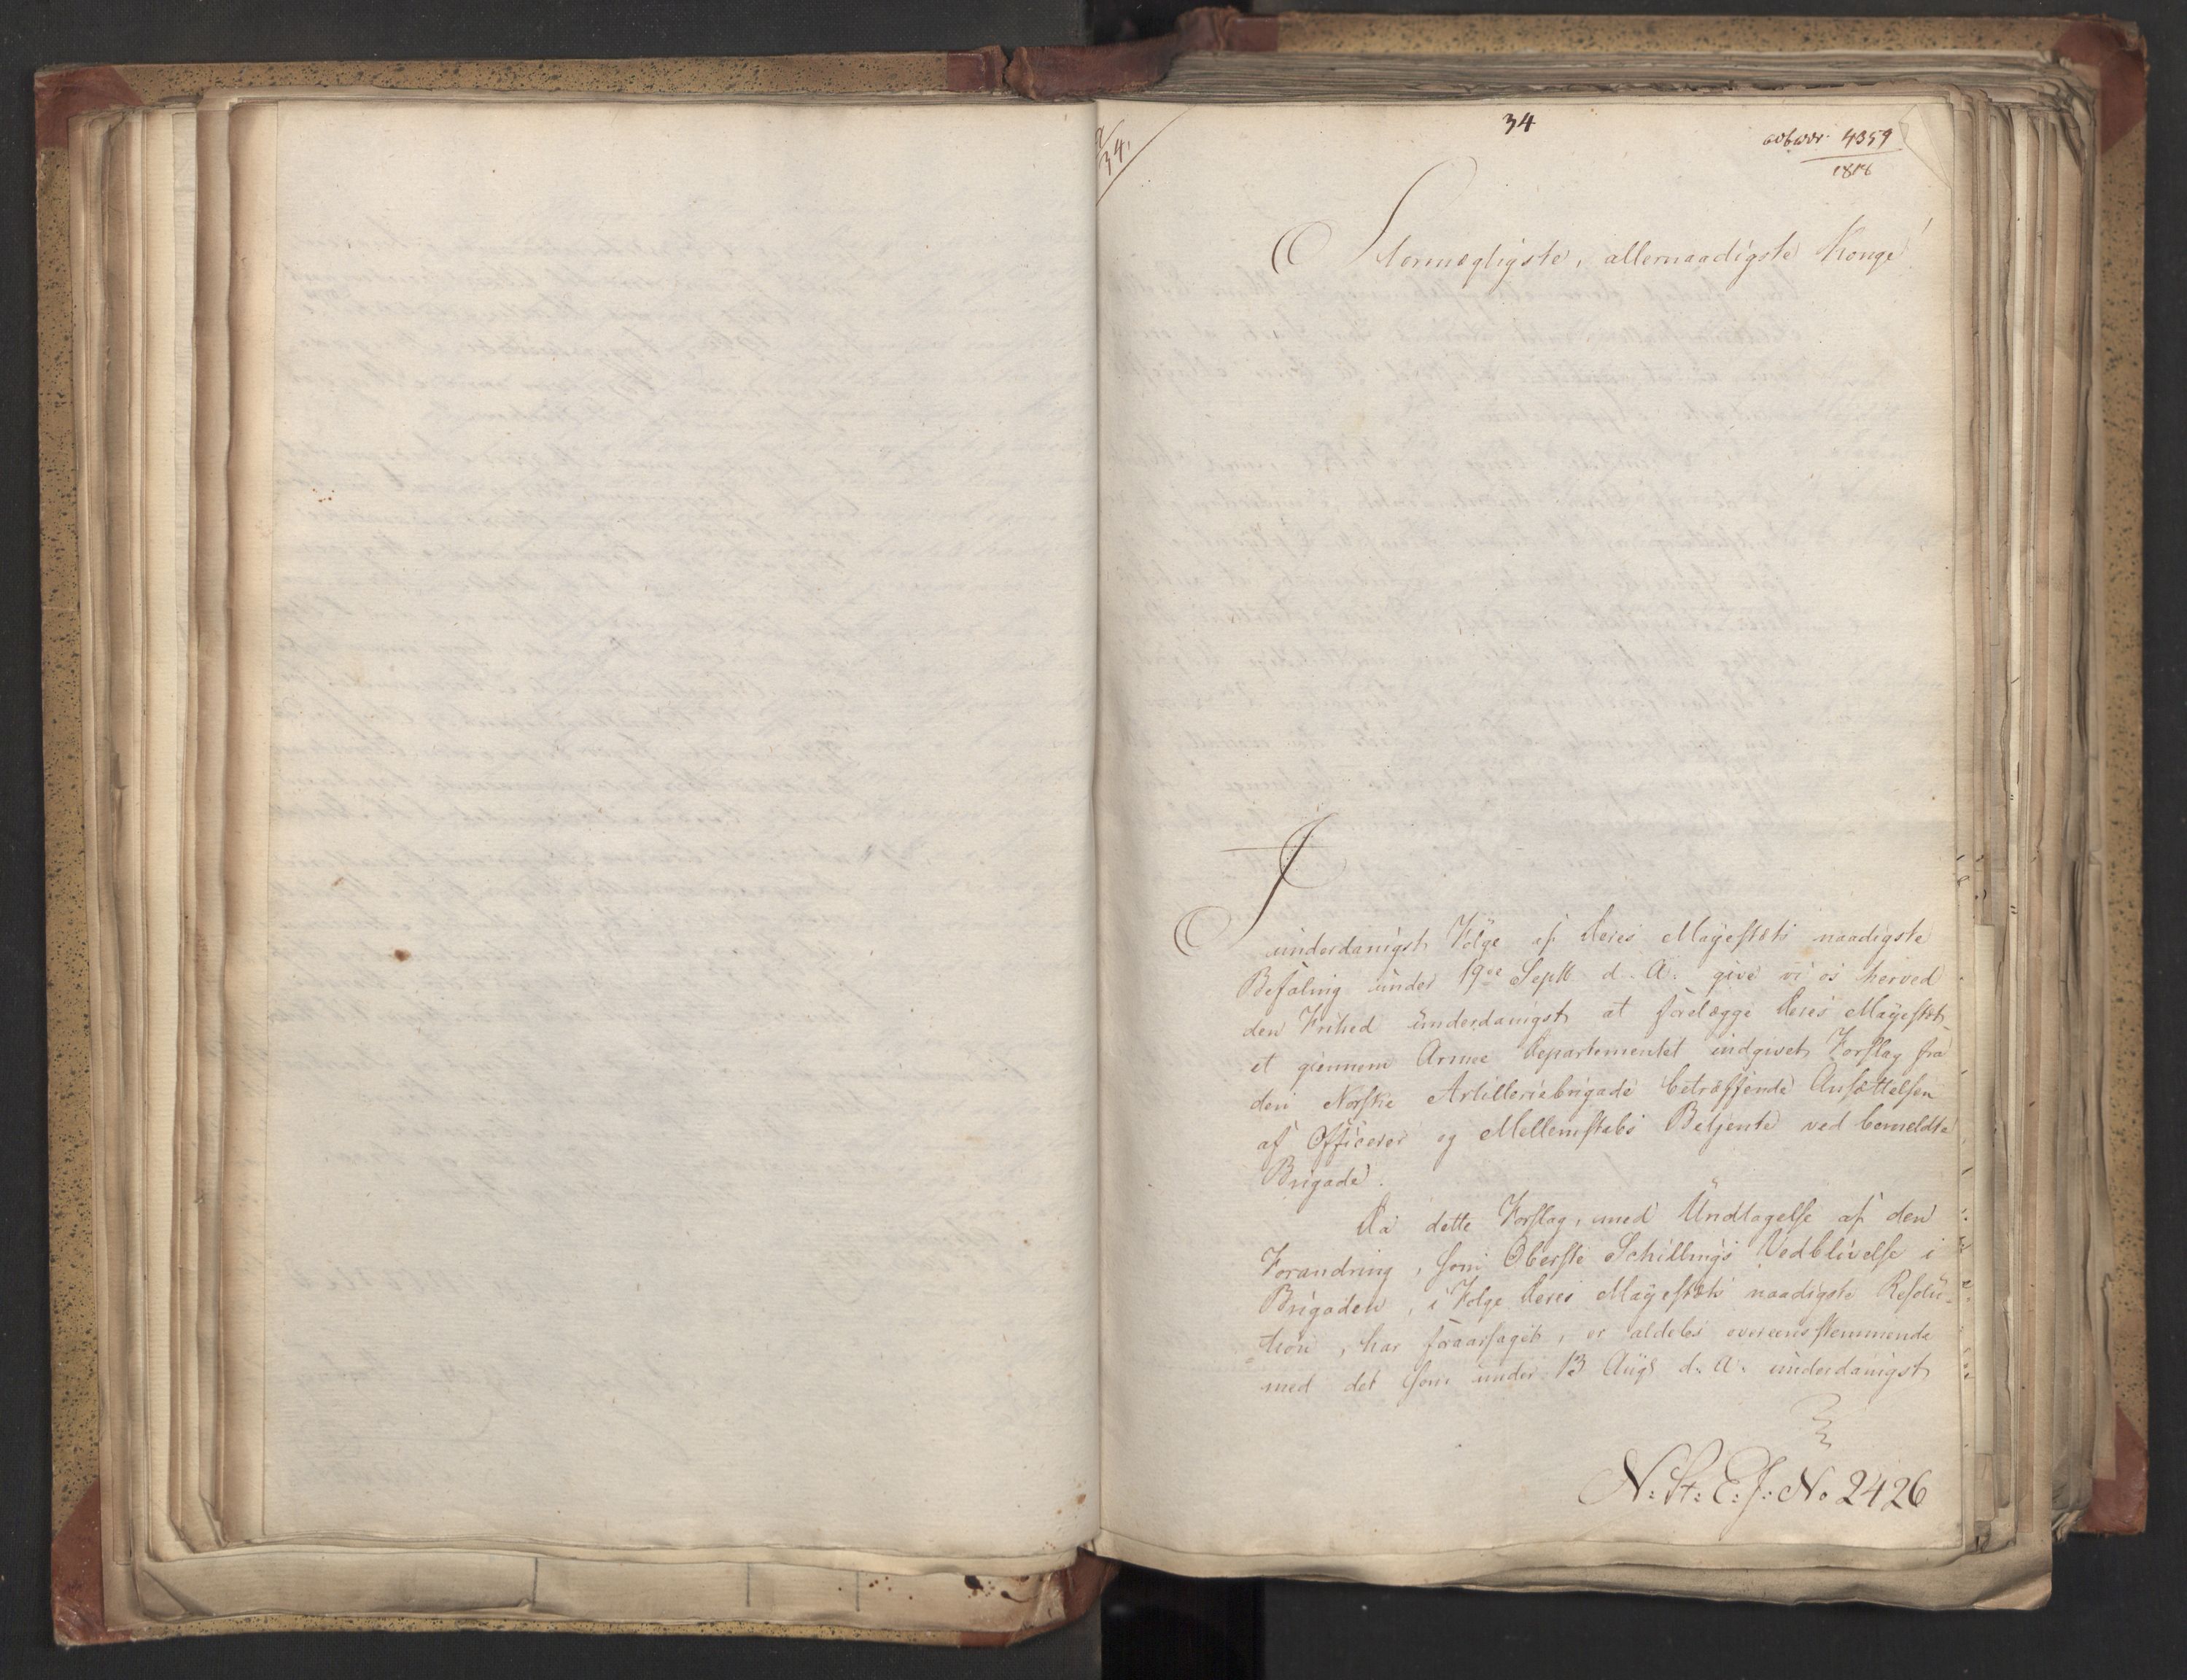 34
4359
1818
34.
Stormægtigste, allernaadigste Konge!
I
underdanigst Følge af Deres Mayestæts naadigste
Befaling under 19de Septb d. A. give vi os herved
den Frihed underdanigst at forelægge Deres Mayestæt
et giennem Armee Departementet indgivet Forslag fra
den Norske Artilleriebrigade betræffende Ansættelsen
af Officerer og Mellemstabs Betjente ved bemeldte
Brigade.
Da dette Forslag, med Undtagelse af den
Forandring, som Oberste Schillings Vedblivelse i
Brigaden, i Følge Deres Mayestæts naadigste Resolu-
=tion, har foraarsaget, er aldeles overeensstemmende
med det som under 13 Augs d. A. underdanigst
N: St: E: J: No 2426